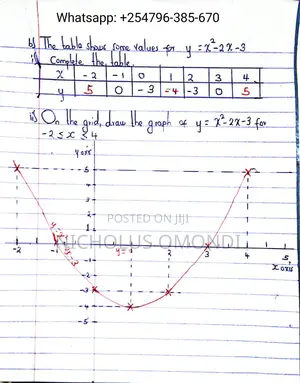 Whatsapp: +254796-385-670
b) The table shows some values for y = x²-2x-3
i) Complete the table.
x -2 -1 0 1 2 3 4
y 5 0 -3 -4 -3 0 5
ii) On the grid, draw the graph of y = x²-2x-3 for
-2 ≤ x ≤ 4
y axis
5
4
3
2
1
POSTED ON JIJI
NICHOLUS OMONDI
-2 -1 1 2 3 4 5
x axis
-1
-2
-3
-4
-5